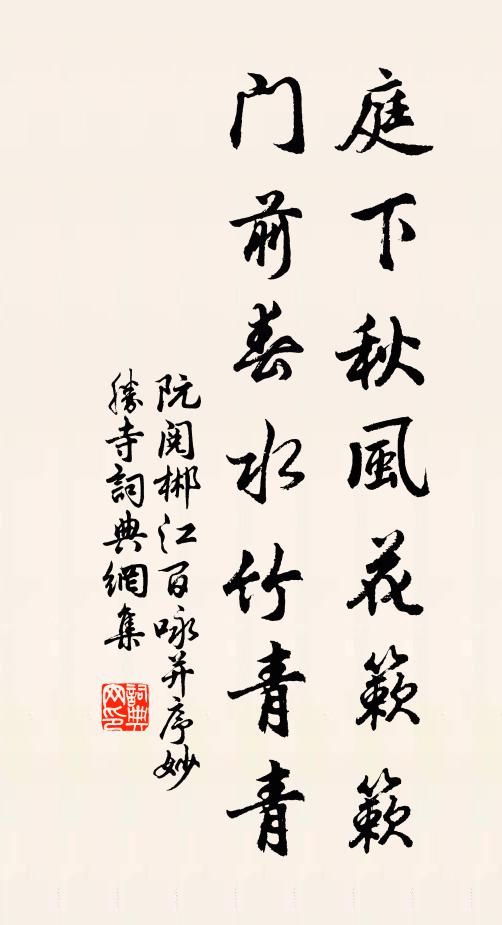 庭下秋風花簌簌
门前春水竹青青
阮阅郴江百咏并序妙
勝寺詞典網集
詞典网印